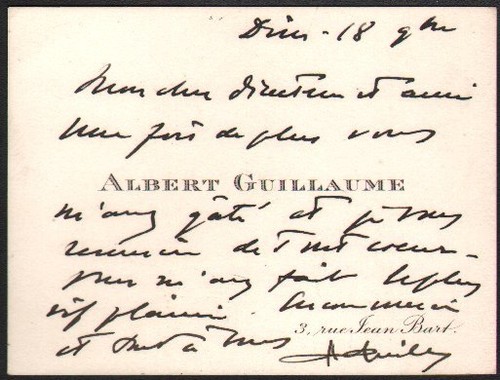 Dim - 18 9bre
Mon cher directeur et ami
Une fois de plus vous
ALBERT GUILLAUME
m'avez gâté et je vous
remercie de tout coeur -
vous m'avez fait le plus
vif plaisir. Encore merci
3, rue Jean Bart.
et tout à vous